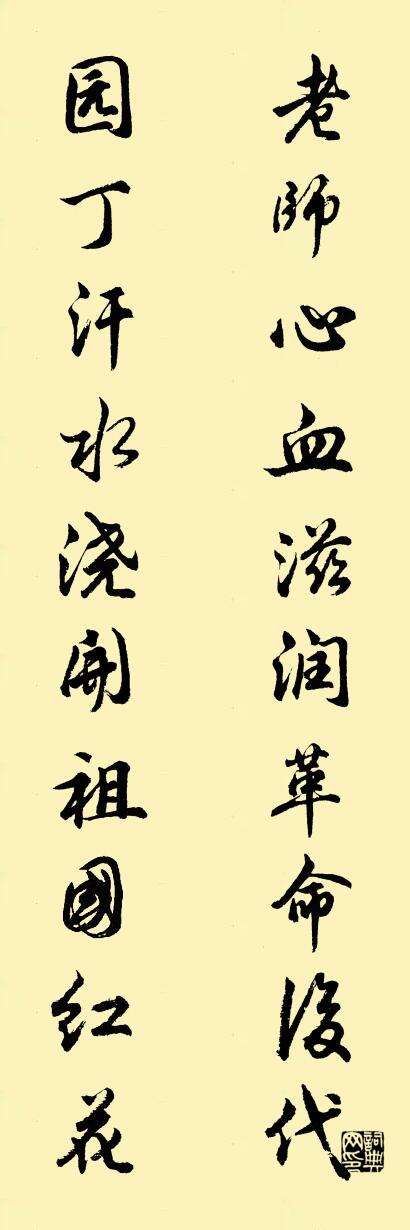 老師心血滋润革命後代
园丁汗水浇開祖國红花
詞典网印